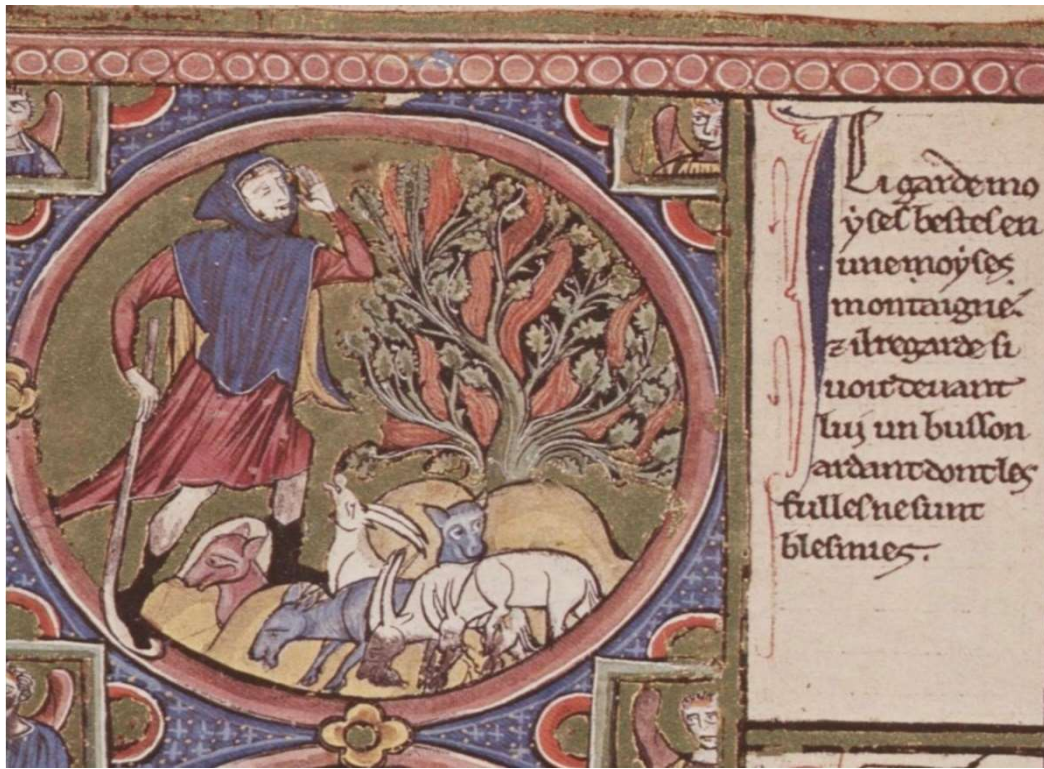 Ici garde mo
yses bestes en
une moyses
montaigne.
⁊ il regarde si
uoit deuant
luj un busson
ardant dont les
fulles ne sunt
blesmies.